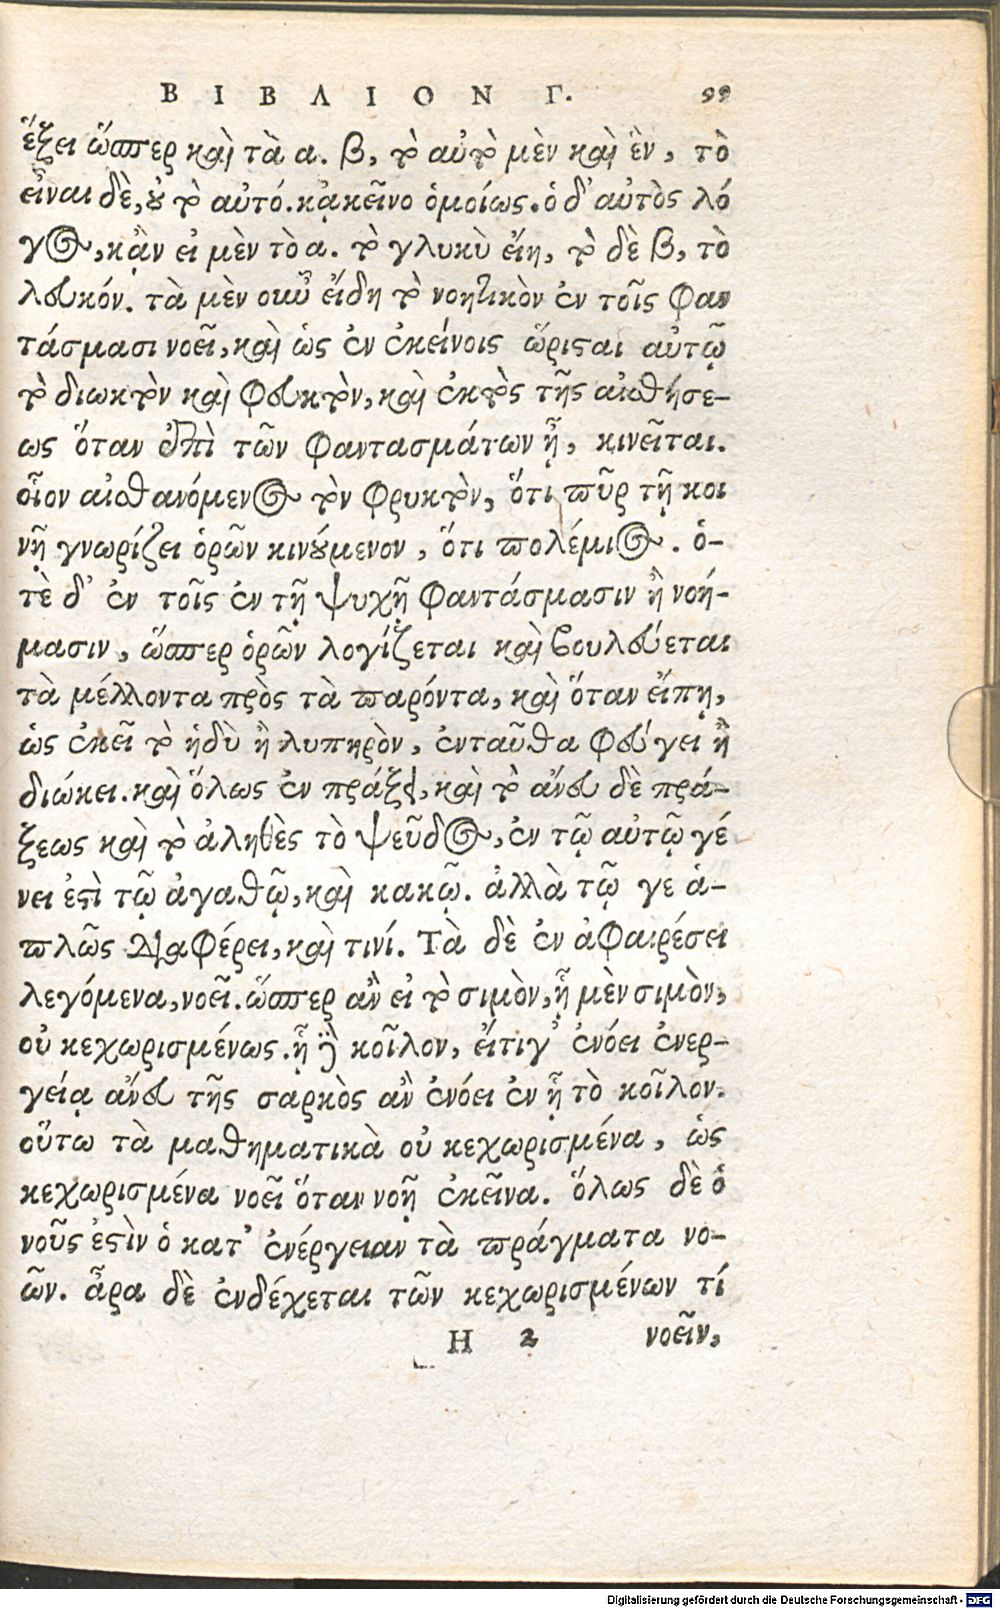 ΒΙΒΛΙΟΝ Γ. 99
ἕξει ὥσπερ καὶ τὰ α. β, τὸ αὐτὸ μὲν καὶ ἓν, τὸ
εἶναι δὲ, οὐ τὸ αὐτό. κᾀκεῖνο ὁμοίως. ὁ δ' αὐτὸς λό
γος, κᾂν εἰ μὲν τὸ α. τὸ γλυκὺ εἴη, τὸ δὲ β, τὸ
λευκόν. τὰ μὲν οὖν εἴδη τὸ νοητικὸν ἐν τοῖς φαν
τάσμασι νοεῖ, καὶ ὡς ἐν ἐκείνοις ὥρισται αὐτῷ
τὸ διωκτὸν καὶ φευκτὸν, καὶ ἐκτὸς τῆς αἰσθήσε-
ως ὅταν ἐπὶ τῶν φαντασμάτων ᾖ, κινεῖται.
οἷον αἰσθανόμενος τὸν φρυκτὸν, ὅτι πῦρ τῇ κοι
νῇ γνωρίζει ὁρῶν κινούμενον, ὅτι πολέμιος. ὁ-
τὲ δ' ἐν τοῖς ἐν τῇ ψυχῇ φαντάσμασιν ἢ νοή-
μασιν, ὥσπερ ὁρῶν λογίζεται καὶ βουλεύεται
τὰ μέλλοντα πρὸς τὰ παρόντα, καὶ ὅταν εἴπῃ,
ὡς ἐκεῖ τὸ ἡδὺ ἢ λυπηρὸν, ἐνταῦθα φεύγει ἢ
διώκει. καὶ ὅλως ἐν πράξει, καὶ τὸ ἄνευ δὲ πρά-
ξεως καὶ τὸ ἀληθὲς τὸ ψεῦδος, ἐν τῷ αὐτῷ γέ
νει ἐστὶ τῷ ἀγαθῷ, καὶ κακῷ. ἀλλὰ τῷ γε ἁ-
πλῶς διαφέρει, καὶ τινί. Τὰ δὲ ἐν ἀφαιρέσει
λεγόμενα, νοεῖ. ὥσπερ ἂν εἰ τὸ σιμὸν, ᾗ μὲν σιμὸν,
οὐ κεχωρισμένως. ᾗ δὲ κοῖλον, εἴτιγ' ἐνόει ἐνερ-
γείᾳ ἄνευ τῆς σαρκὸς ἂν ἐνόει ἐν ᾗ τὸ κοῖλον.
οὕτω τὰ μαθηματικὰ οὐ κεχωρισμένα, ὡς
κεχωρισμένα νοεῖ ὅταν νοῇ ἐκεῖνα. ὅλως δὲ ὁ
νοῦς ἐστὶν ὁ κατ' ἐνέργειαν τὰ πράγματα νο-
ῶν. ἆρα δὲ ἐνδέχεται τῶν κεχωρισμένων τί
H 2 νοεῖν,
Digitalisierung gefördert durch die Deutsche Forschungsgemeinschaft - DFG